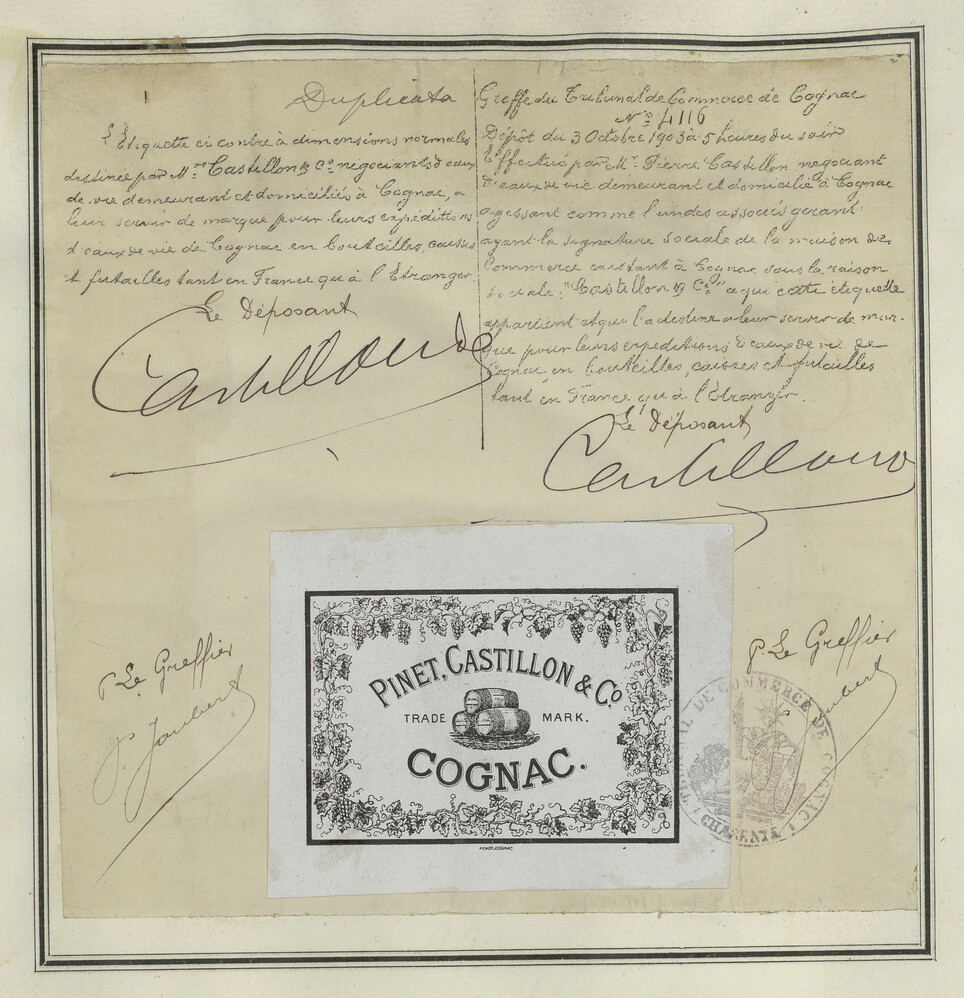 Duplicata
L'Etiquette ci contre à dimensions normales
destinée par Mrs Castillon & Co négociants d'eaux
de vie demeurant et domiciliés à Cognac, a
leur servir de marque pour leurs expéditions
d'eaux de vie de Cognac en bouteilles, caisses
et futailles tant en France qu'à l'Etranger
Le Déposant
Castillon
Greffe du Tribunal de Commerce de Cognac
No 4116
Dépôt du 3 Octobre 1903 à 5 heures du soir
Effectué par Mr Pierre Castillon négociant
d'eaux de vie demeurant et domicilié à Cognac
agissant comme l'un des associés gérant
ayant la signature sociale de la maison de
Commerce existant à Cognac sous la raison
sociale "Castillon & Co" a qui cette étiquette
appartient et qui l'a destine a leur servir de mar-
que pour leurs expeditions d'eaux de vie de
Cognac en bouteilles, caisses et futailles
tant en France qu'à l'Etranger.
Le Déposant
Castillon
P. Le Greffier
P. Joubert
PINET, CASTILLON & Co
TRADE MARK.
COGNAC.
P. Le Greffier
Joubert
TRIBUNAL DE COMMERCE DE COGNAC
CHARENTE